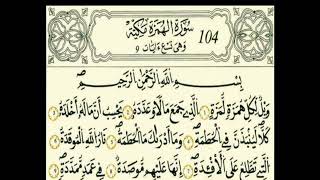 سُورَةُ الهُمَزَةِ مَكِّيَّة
104
وَهِيَ تِسْعُ ءَايَاتٍ 9
بِسْمِ اللَّهِ الرَّحْمَٰنِ الرَّحِيمِ
وَيْلٌ لِّكُلِّ هُمَزَةٍ لُّمَزَةٍ ١ الَّذِي جَمَعَ مَالًا وَعَدَّدَهُ ٢ يَحْسِبُ أَنَّ مَالَهُ أَخْلَدَهُ ٣
كَلَّا لَيُنبَذَنَّ فِي الْحُطَمَةِ ٤ وَمَا أَدْرَاكَ مَا الْحُطَمَةُ ٥ نَارُ اللَّهِ الْمُوقَدَةُ ٦
الَّتِي تَطَّلِعُ عَلَى الْأَفْئِدَةِ ٧ إِنَّهَا عَلَيْهِم مُّوصَدَةٌ ٨ فِي عَمَدٍ مُّمَدَّدَةٍ ٩